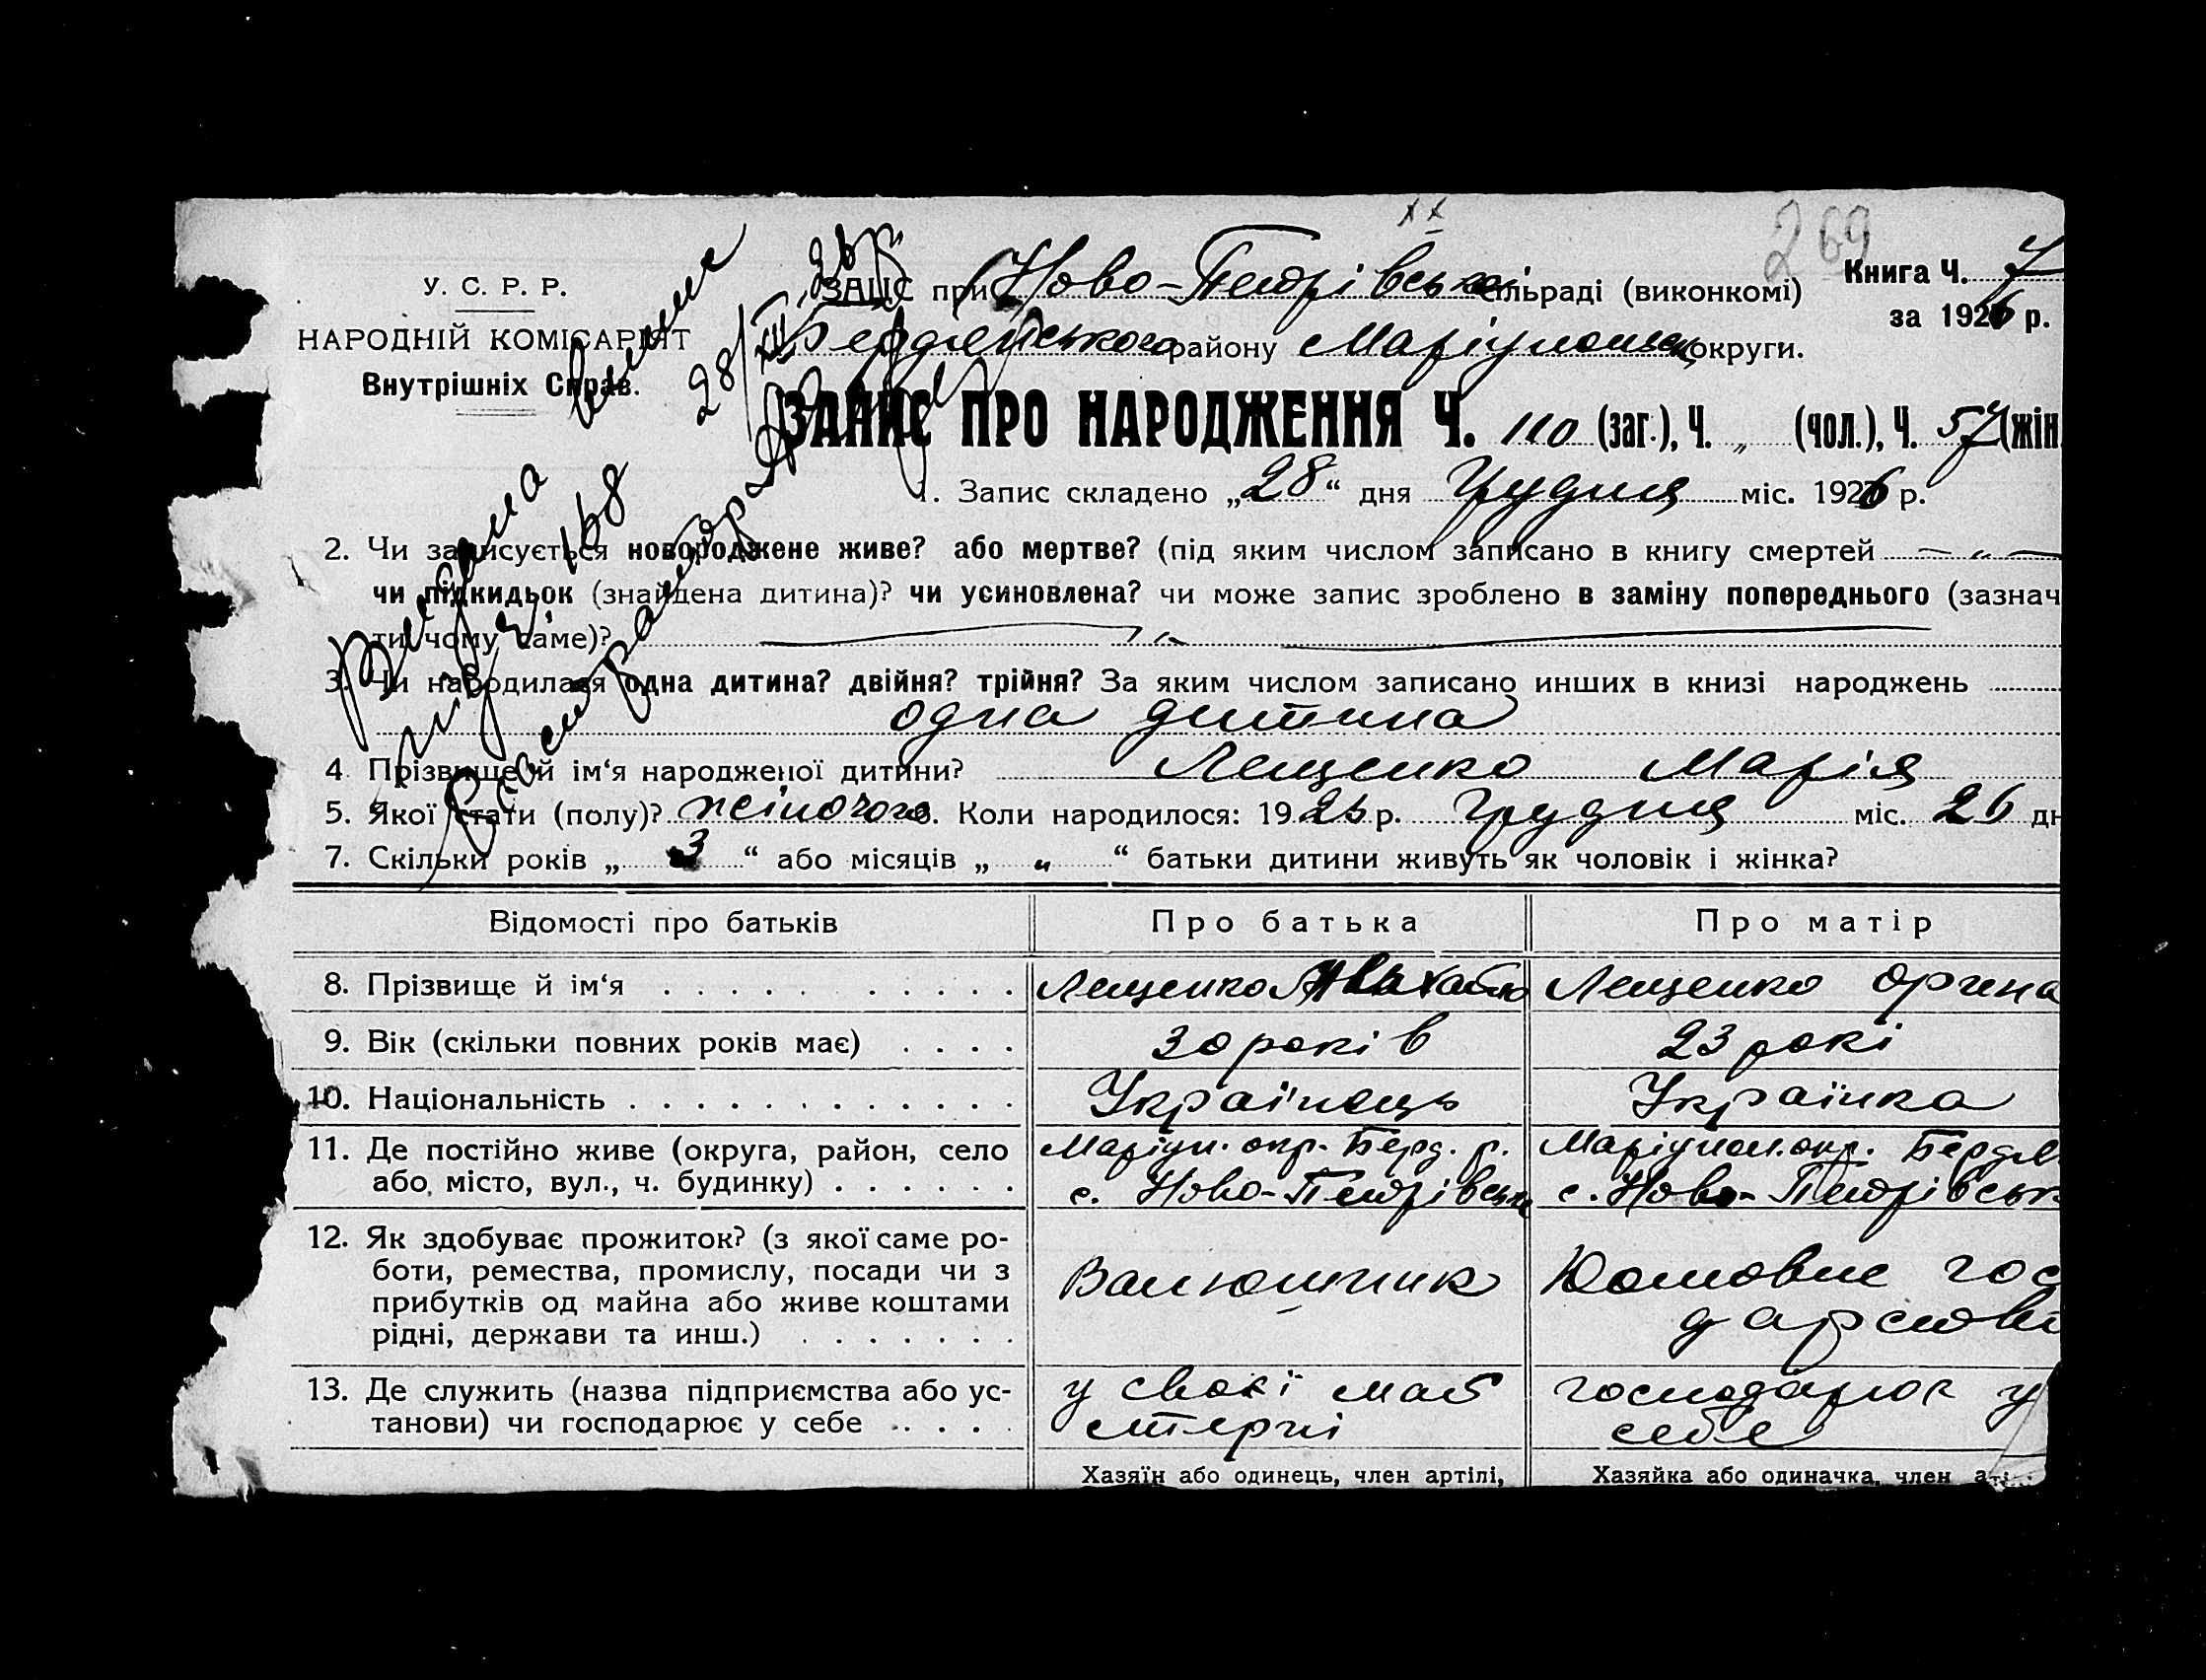 269
У. С. Р. Р.
НАРОДНІЙ КОМІСАРІЯТ
Внутрішніх Справ.
ЗАЦС при Ново-Петрівській сільраді (виконкомі)
Книга Ч. 7
за 1926 р.
Бердянського району Маріупольськ округи.
ЗАПИС ПРО НАРОДЖЕННЯ Ч. 110 (заг.), Ч. „ (чол.), Ч. 57 (жін
1. Запис складено „28“ дня Грудня міс. 1926 р.
Видана виписка
28/XII 26 р.
168
2. Чи записується новороджене живе? або мертве? (під яким числом записано в книгу смертей — „ —
чи підкидьок (знайдена дитина)? чи усиновлена? чи може запис зроблено в заміну попереднього (зазнач
ти, чому саме)?
3. Чи народилася одна дитина? двійня? трійня? За яким числом записано инших в книзі народжень
одна дитина
4. Прізвище й ім‘я народженої дитини? Лещенко Марія
5. Якої стати (полу)? жіночого 6. Коли народилося: 1926 р. Грудня міс. 26 дн
7. Скільки років „ 3 “ або місяців „ „ “ батьки дитини живуть як чоловік і жінка?
Відомості про батьків Про батька Про матір
8. Прізвище й ім‘я Лещенко Михайло Лещенко Орина
9. Вік (скільки повних років має) 30 років 23 рокі
10. Національність Українець Українка
11. Де постійно живе (округа, район, село Маріуп. окр. Берд. р. Маріупол. окр. Бердян
або місто, вул., ч. будинку) с. Ново-Петрівська с. Ново-Петрівськ
12. Як здобуває прожиток? (з якої саме ро-
боти, ремества, промислу, посади чи з Валюшник Домовне гос
прибутків од майна або живе коштами дарстві
рідні, держави та инш.)
13. Де служить (назва підприємства або ус- у своєї май господарює у
танови) чи господарює у себе стерні себе
Хазяїн або одинець, член артілі, Хазяйка або одиначка, член